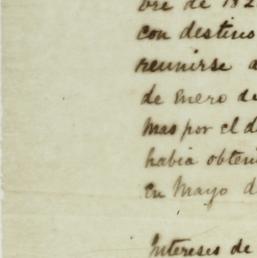 bre de 182
con destino
reunirse a
de enero de
mas por el d
habia obteni
En Mayo d
Intereses de